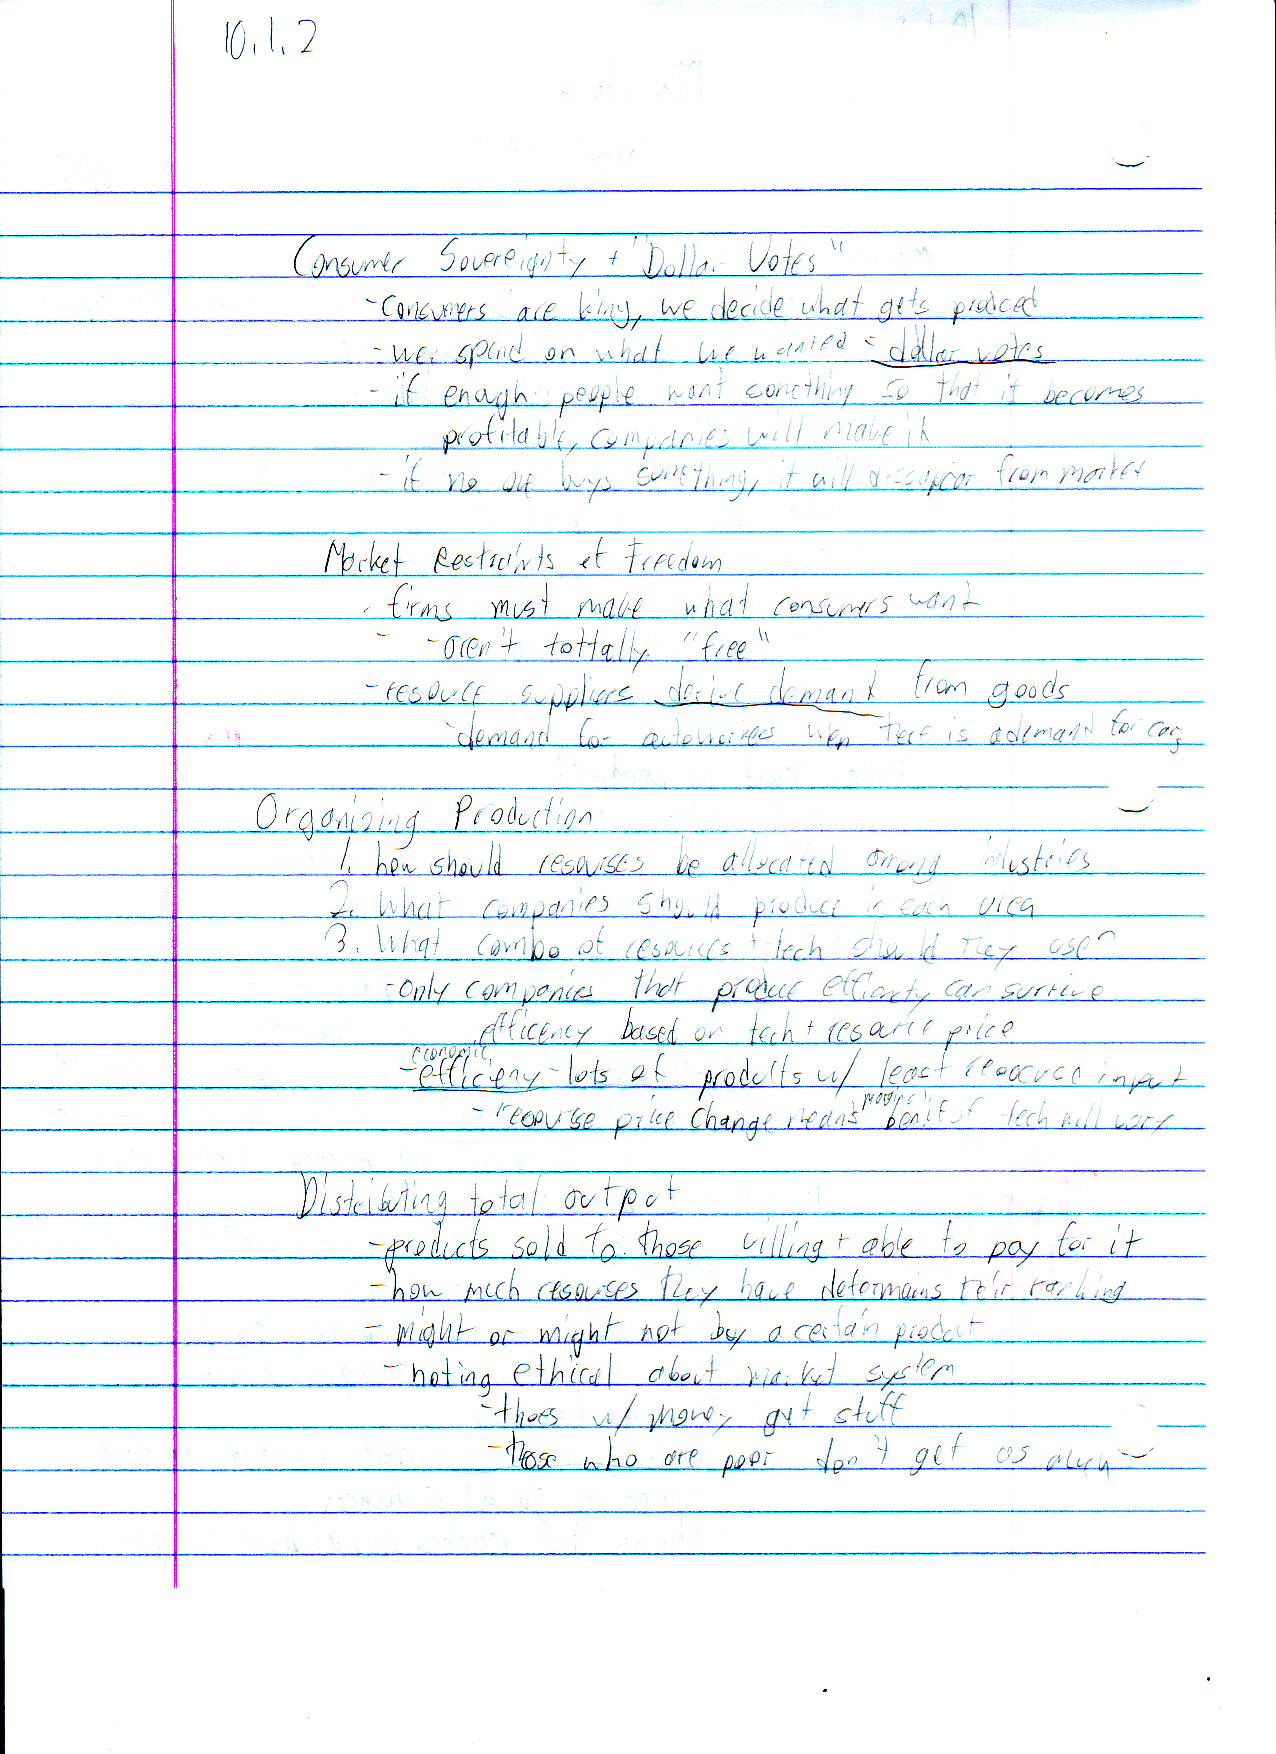 10.1.2
Consumer Sovereignty + "Dollar Votes"
- Consumers are king, we decide what gets prodced
- we spend on what we wanted - dollar votes
- if enough people want something so that it becomes
profitable, companies will make it
- if no one buys something, it will dissapear from market
Market Restraints of Freedom
- firms must make what consumers want
- aren't tottally "free"
- resource suppliers derive demand from goods
- demand for when there is a demand for cars
Organizing Production
1. how should resourses be allocated among industries
2. What companies should produce in each area
3. What combo of resources + tech should they use?
- Only companies that produce efficiently can survive
efficency based on tech + resource price
economic
- efficieny - lots of products w/ least resource input
- resourse price change means benifit of tech will vary
Distributing total output
- products sold to those willing + able to pay for it
- how much resourses they have determains their ranking
- might or might not buy a certain product
- noting ethical about market system
- thoes w/ money get stuff
- those who are poor don't get as much